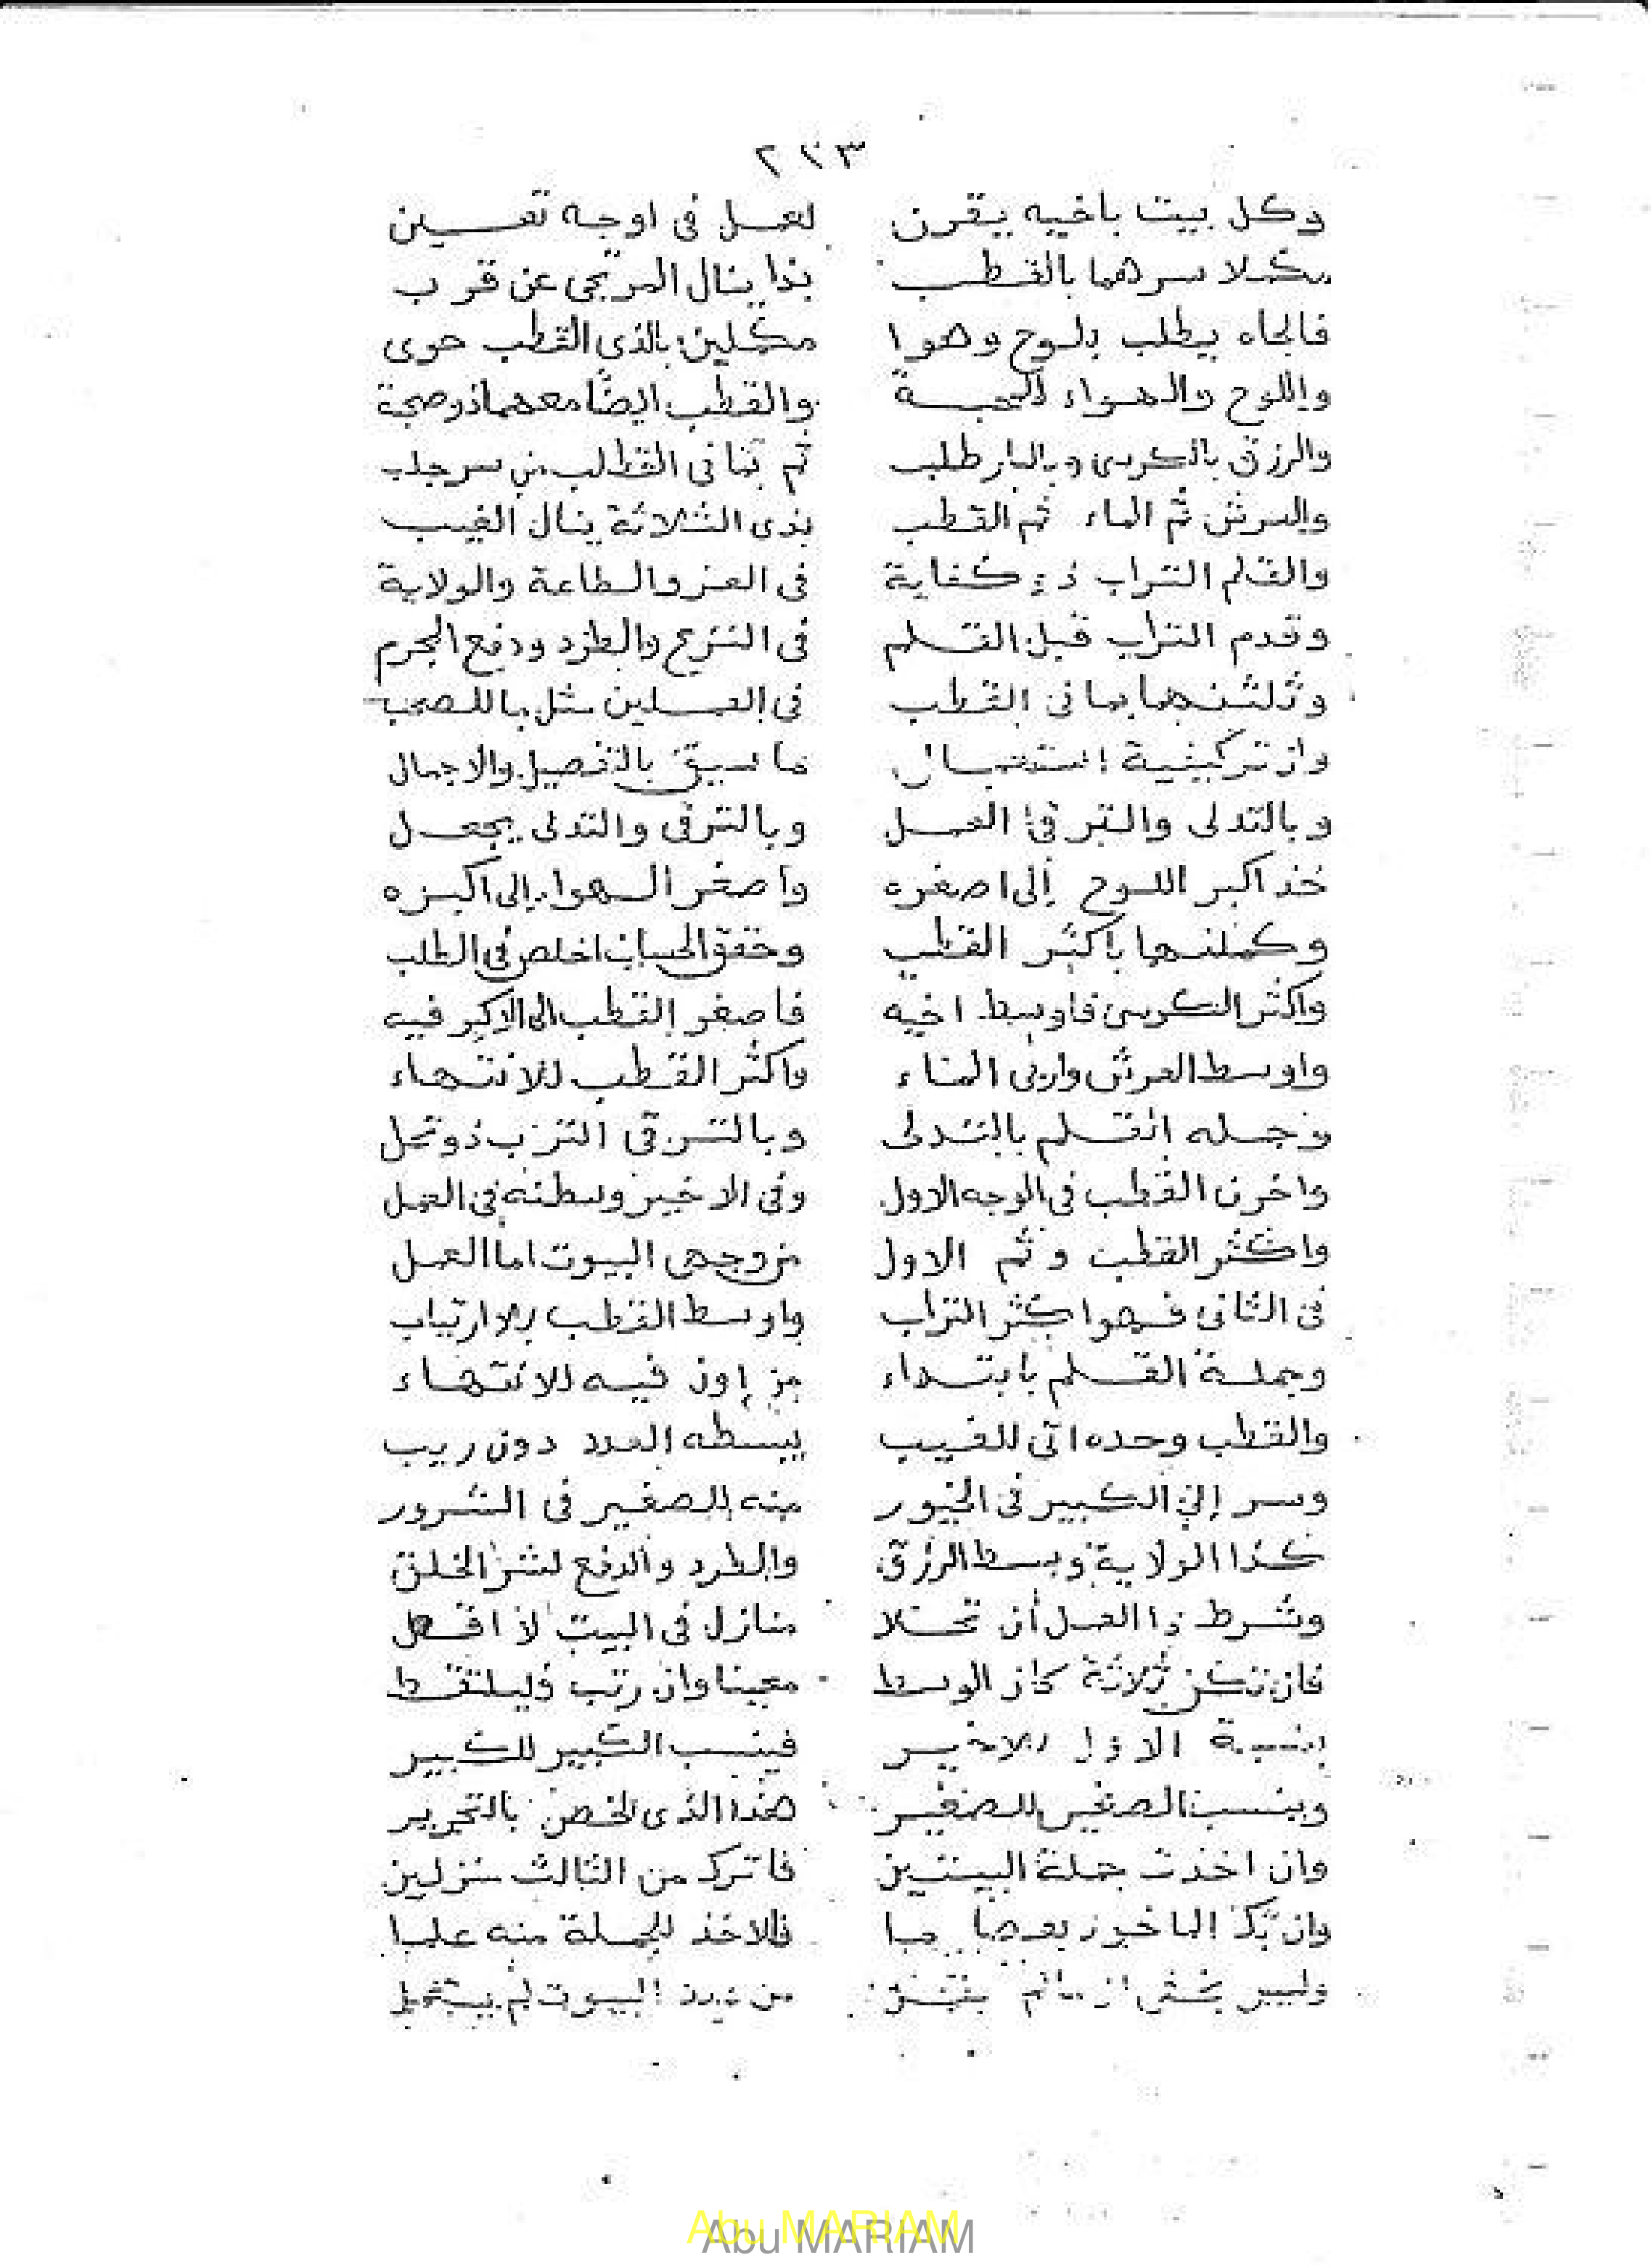 ٢٢٣
وكل بيت باخيه يقرن لعمل فى اوجه تعين
مكملا سرهما بالقطب بذا ينال المرتجى عن قرب
فالجاه يطلب بلوح وهوا مكملين بالذى القطب حوى
واللوح والهواء للمحبة والقطب ايضا معهما ذو صحبة
والرزق بالكرسى وبالنار طلب ثم بما فى القطب من سر جلب
والعرش ثم الماء ثم القطب بذى الثلاثة ينال الغيب
والقلم التراب ذو كفاية فى العز والطاعة والولاية
وقدم التراب قبل القلم فى النزع والطرد ودفع المجرم
وثلثنهما بما فى القطب فى العملين مثل بالصحب
وان ترد كيفية استعمال ما سبق بالتفصيل والاجمال
وبالتدلى والترقى العمل وبالترقى والتدلى يجعل
خذ اكبر اللوح إلى اصغره واصغر الهواء إلى اكبره
وكملنها باكثر القطب وحقق الحساب اخلص فى الطلب
واكثر الكرسى فاوسط اخيه فاصغر القطب الى الاكبر فيه
واوسط العرش وادنى الماء واكثر القطب للانتهاء
وجمله القلم بالتدلى وبالترقى الترب ذو تحل
واخرن القطب فى الوجه الاول وفى الاخير وسطنه فى العمل
واكثر القطب وثم الاول من وجهى البيوت اما العمل
فى الثانى فهو اكثر التراب واوسط القطب بلا ارتياب
وجملة القلم بابتداء من إون فيه للانتهاء
والقطب وحده اتى للغيب يبسطه العدد دون ريب
وسر إلى الكبير فى الخيور منه للصغير فى الشرور
كذا الولاية وبسط الرزق والطرد والدفع لشر الخلق
وشرط ذا العمل أن تحتلا منازل فى البيت لا اقل
فان تكن ثلاثة كان الوسط معينا وان رتب فليلتقط
بنسبة الاول للاخير فينسب الكبير للكبير
وينسب الصغير للصغير هذا الذى لخص بالتحرير
وان اخذت جملة البيتين فاترك من الثالث منزلين
وان يكن الماخوذ بعضا فالاخذ للجملة منه علما
وليس يخشى من البيوت لم
Abu MARIAM
Abu MARIAM